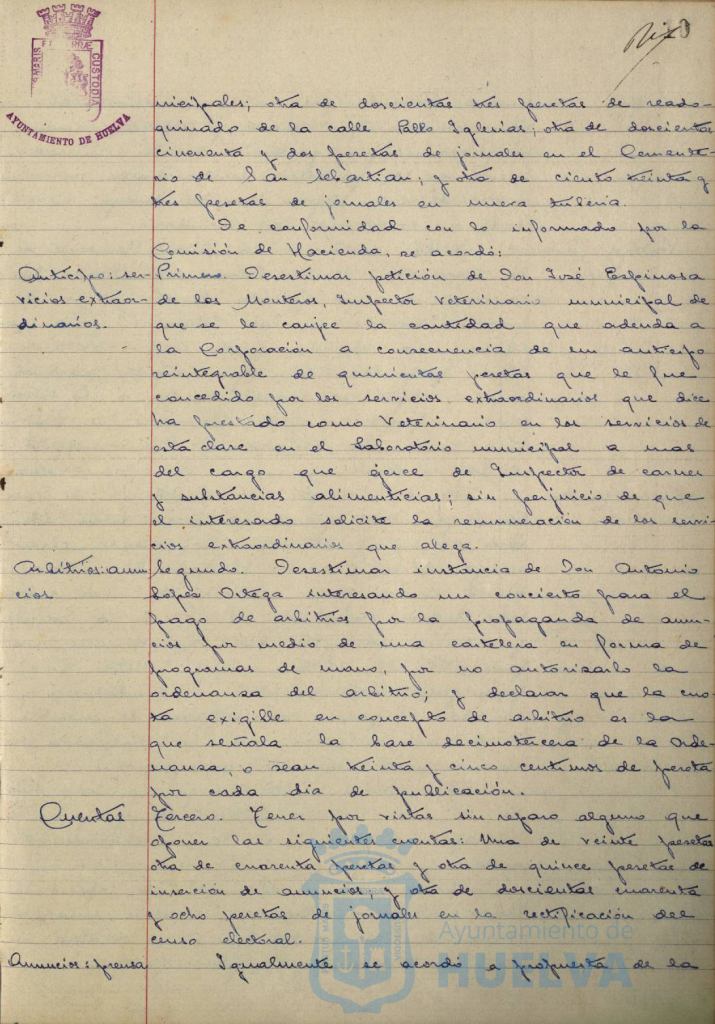 MARIS
CUSTODIA
AYUNTAMIENTO DE HUELVA
nicipales; otra de doscientas tres pesetas de reado-
quinado de la calle Pablo Iglesias; otra de doscientas
cincuenta y dos pesetas de jornales en el Cemente-
rio de San Sebastian; y otra de ciento treinta y
tres pesetas de jornales en nueva tuberia.
De conformidad con lo informado por la
Comisión de Hacienda, se acordó:
Anticipo: ser-
vicios extraor-
dinarios.
Primero. Desestimar petición de Don José Espinosa
de los Monteros, Inspector Veterinario municipal de
que se le canjee la cantidad que adeuda a
la Corporación a consecuencia de un anticipo
reintegrable de quinientas pesetas que le fue
concedido por los servicios extraordinarios que dice
ha prestado como Veterinario en los servicios de
esta clase en el Laboratorio municipal a mas
del cargo que ejerce de Inspector de carnes
y substancias alimenticias; sin perjuicio de que
el interesado solicite la remuneración de los servi-
cios extraordinarios que alega.
Arbitrios: anun-
cios
Segundo. Desestimar instancia de Don Antonio
Lopez Ortega interesando un concierto para el
pago de arbitrios por la propaganda de anun-
cios por medio de una cartelera en forma de
programas de mano, por no autorizarlo la
ordenanza del arbitrio; y declarar que la cuo-
ta exigible en concepto de arbitrio es la
que señala la base decimotercera de la Orde-
nanza, o sean treinta y cinco centimos de peseta
por cada dia de publicación.
Cuentas
Tercero. Tener por vistas sin reparo alguno que
oponer las siguientes cuentas: Una de veinte pesetas
otra de cuarenta pesetas y otra de quince pesetas de
inserción de anuncios; y otra de doscientas cuarenta
y ocho pesetas de jornales en la rectificación del
censo electoral.
Anuncios: prensa
Igualmente se acordó a propuesta de la
Ayuntamiento de
HUELVA